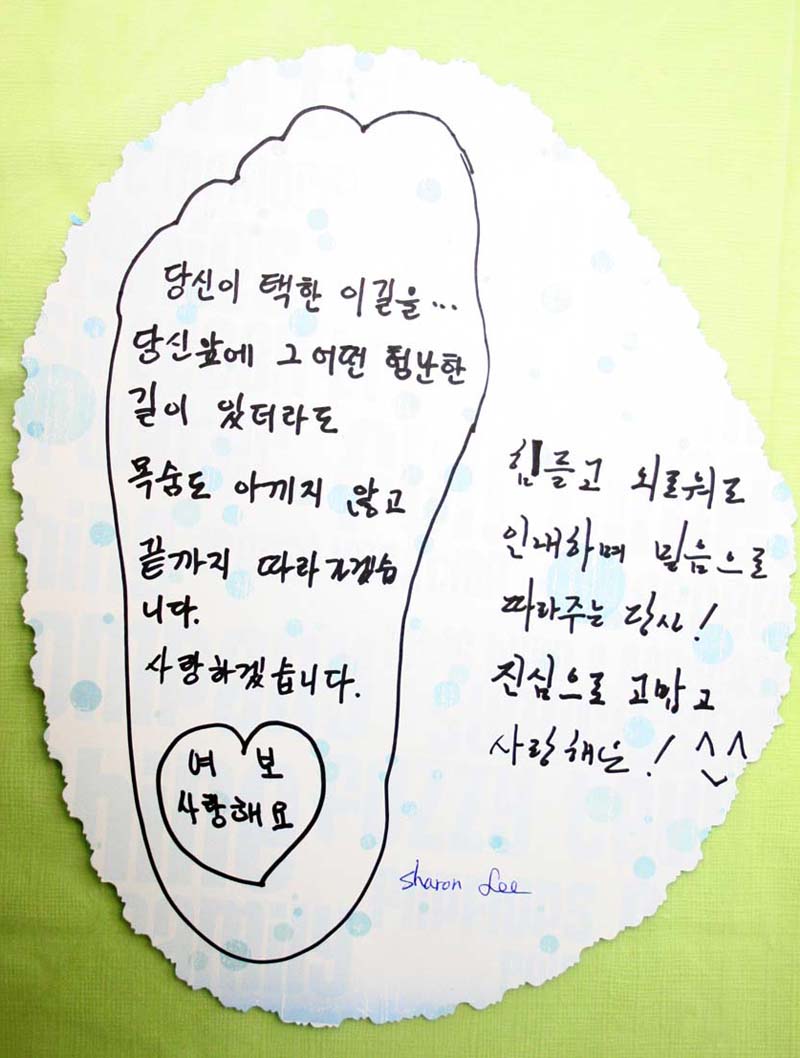 당신이 택한 이길을...
당신앞에 그 어떤 험난한
길이 있더라도
목숨도 아끼지 않고
끝까지 따라 가겠습
니다.
사랑하겠습니다.
여 보
사랑해요
힘들고 외로워도
인내하며 믿음으로
따라주는 당신!
진심으로 고맙고
사랑해요! ^^
Sharon Lee